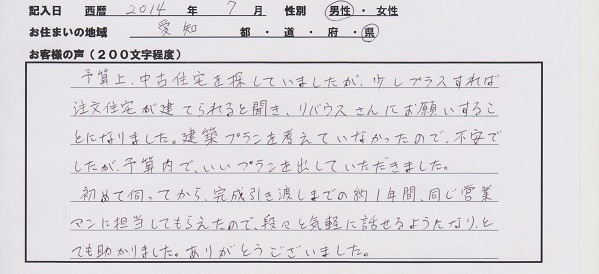 記入日 西暦 2014 年 7 月 性別 男性・女性
お住まいの地域 愛知 都・道・府・県
お客様の声（200文字程度）
予算上、中古住宅を探していましたが、少しプラスすれば
注文住宅が建てられると聞き、リバウスさんにお願いするこ
とになりました。建築プランを考えていなかったので、不安で
したが、予算内で、いいプランを出していただきました。
初めて伺ってから、完成引き渡しまでの約1年間、同じ営業
マンに担当してもらえたので、段々と気軽に話せるようになり、と
ても助かりました。ありがとうございました。